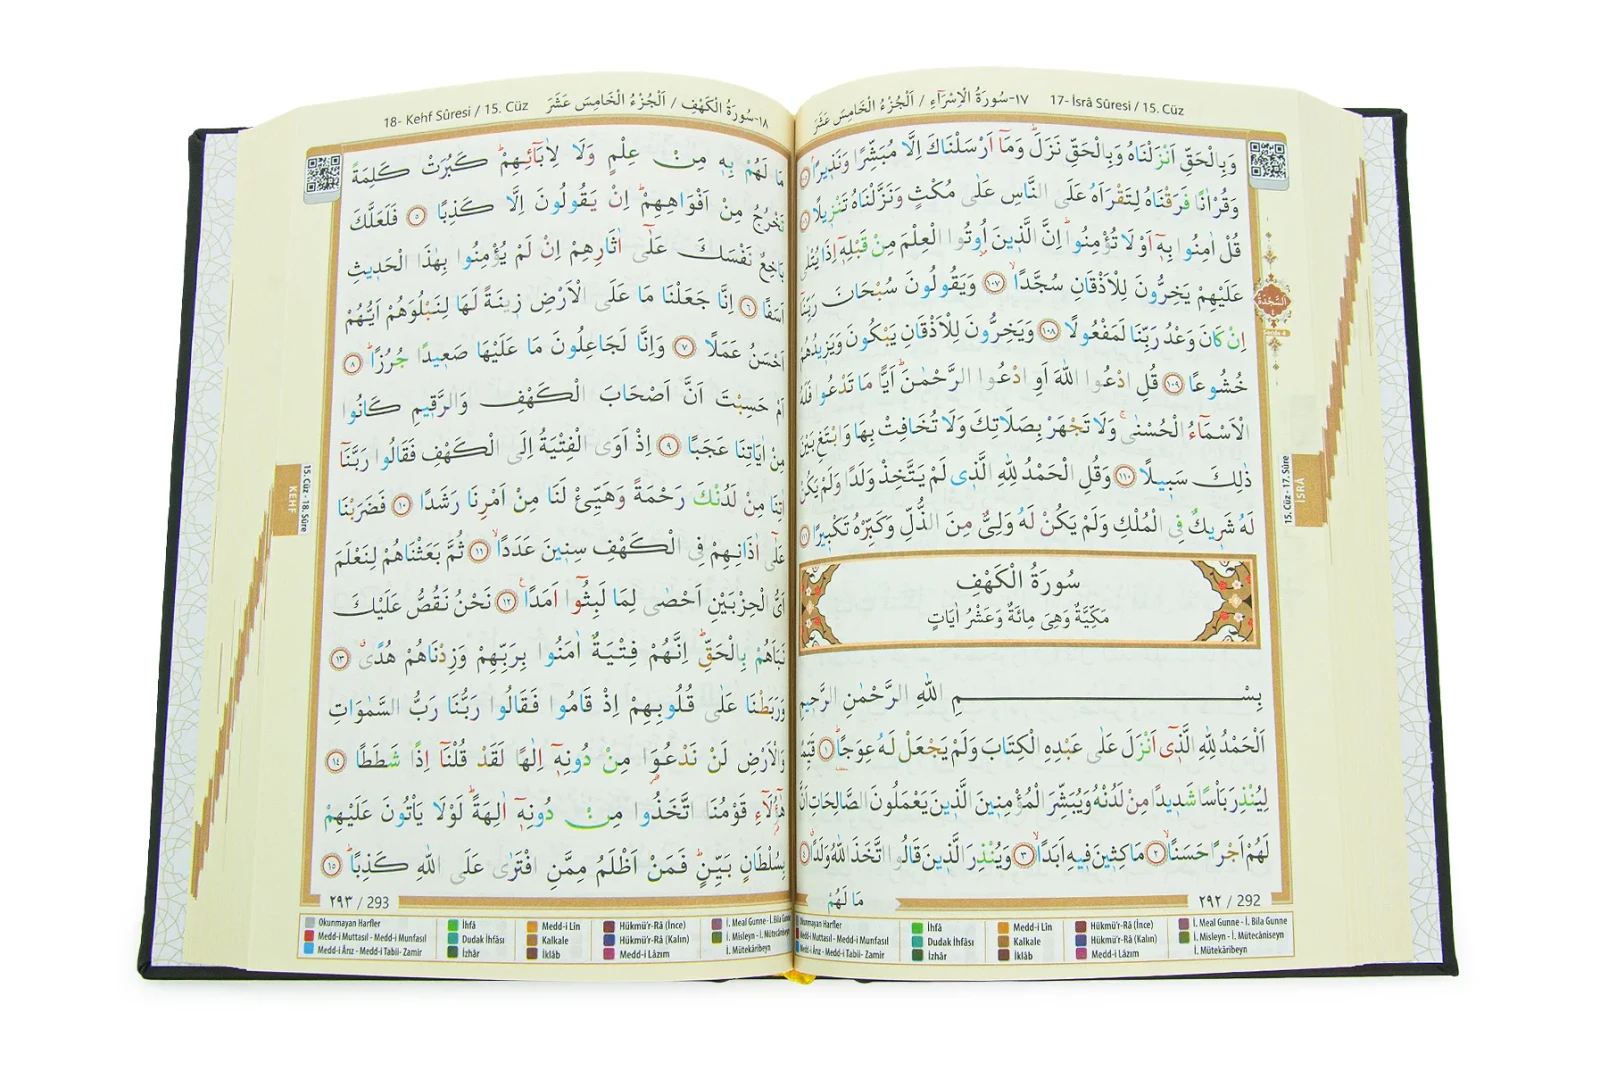 ١٧-سُورَةُ الْاِسْرَٓاءِ / اَلْجُزْءُ الْخَامِسَ عَشَرَ 17- İsrâ Sûresi / 15. Cüz
وَبِالْحَقِّ اَنْزَلْنَاهُ وَبِالْحَقِّ نَزَلَۜ وَمَٓا اَرْسَلْنَاكَ اِلَّا مُبَشِّرًا وَنَذ۪يرًاۢ ﴿١٠٥﴾
وَقُرْاٰنًا فَرَقْنَاهُ لِتَقْرَاَهُ عَلَى النَّاسِ عَلٰى مُكْثٍ وَنَزَّلْنَاهُ تَنْز۪يلًا ﴿١٠٦﴾
قُلْ اٰمِنُوا بِه۪ٓ اَوْ لَا تُؤْمِنُواۜ اِنَّ الَّذ۪ينَ اُو۫تُوا الْعِلْمَ مِنْ قَبْلِه۪ٓ اِذَا يُتْلٰى
عَلَيْهِمْ يَخِرُّونَ لِلْاَذْقَانِ سُجَّدًاۙ ﴿١٠٧﴾ وَيَقُولُونَ سُبْحَانَ رَبِّنَٓا
اِنْ كَانَ وَعْدُ رَبِّنَا لَمَفْعُولًا ﴿١٠٨﴾ وَيَخِرُّونَ لِلْاَذْقَانِ يَبْكُونَ وَيَز۪يدُهُمْ
خُشُوعًا ﴿١٠٩﴾ قُلِ ادْعُوا اللّٰهَ اَوِ ادْعُوا الرَّحْمٰنَۜ اَيًّا مَا تَدْعُوا فَلَهُ
الْاَسْمَٓاءُ الْحُسْنٰىۚ وَلَا تَجْهَرْ بِصَلَاتِكَ وَلَا تُخَافِتْ بِهَا وَابْتَغِ بَيْنَ
ذٰلِكَ سَب۪يلًا ﴿١١٠﴾ وَقُلِ الْحَمْدُ لِلّٰهِ الَّذ۪ى لَمْ يَتَّخِذْ وَلَدًا وَلَمْ يَكُنْ
لَهُ شَر۪يكٌ فِى الْمُلْكِ وَلَمْ يَكُنْ لَهُ وَلِىٌّ مِنَ الذُّلِّ وَكَبِّرْهُ تَكْب۪يرًا ﴿١١١﴾
سُورَةُ الْكَهْفِ
مَكِّيَّةٌ وَهِىَ مِائَةٌ وَعَشْرُ اٰيَاتٍ
بِسْــــــــمِ اللّٰهِ الرَّحْمٰنِ الرَّح۪يمِ
اَلْحَمْدُ لِلّٰهِ الَّذ۪ٓى اَنْزَلَ عَلٰى عَبْدِهِ الْكِتَابَ وَلَمْ يَجْعَلْ لَهُ عِوَجًاۜ ﴿١﴾ قَيِّمًا
لِيُنْذِرَ بَاْسًا شَد۪يدًا مِنْ لَدُنْهُ وَيُبَشِّرَ الْمُؤْمِن۪ينَ الَّذ۪ينَ يَعْمَلُونَ الصَّالِحَاتِ اَنَّ
لَهُمْ اَجْرًا حَسَنًاۙ ﴿٢﴾ مَاكِث۪ينَ ف۪يهِ اَبَدًاۙ ﴿٣﴾ وَيُنْذِرَ الَّذ۪ينَ قَالُوا اتَّخَذَ اللّٰهُ وَلَدًاۗ ﴿٤﴾
مَا لَهُمْ
٢٩٢ / 292
السَّجْدَةُ
15. Cüz - 17. Sûre
İSRÂ
Okunmayan Harfler
Medd-i Muttasıl - Medd-i Munfasıl
Medd-i Ârız - Medd-i Tabiî- Zamir
İhfâ
Dudak İhfâsı
İzhâr
Medd-i Lîn
Kalkale
İklâb
Hükmü'r-Râ (İnce)
Hükmü'r-Râ (Kalın)
Medd-i Lâzım
İ. Meal Gunne - İ. Bila Gunne
İ. Misleyn - İ. Mütecâniseyn
İ. Mütekâribeyn
18- Kehf Sûresi / 15. Cüz ١٨-سُورَةُ الْكَهْفِ / اَلْجُزْءُ الْخَامِسَ عَشَرَ
مَا لَهُمْ بِه۪ مِنْ عِلْمٍ وَلَا لِاٰبَٓائِهِمْۜ كَبُرَتْ كَلِمَةً
تَخْرُجُ مِنْ اَفْوَاهِهِمْۜ اِنْ يَقُولُونَ اِلَّا كَذِبًا ﴿٥﴾ فَلَعَلَّكَ
بَاخِعٌ نَفْسَكَ عَلٰٓى اٰثَارِهِمْ اِنْ لَمْ يُؤْمِنُوا بِهٰذَا الْحَد۪يثِ
اَسَفًا ﴿٦﴾ اِنَّا جَعَلْنَا مَا عَلَى الْاَرْضِ ز۪ينَةً لَهَا لِنَبْلُوَهُمْ اَيُّهُمْ
اَحْسَنُ عَمَلًا ﴿٧﴾ وَاِنَّا لَجَاعِلُونَ مَا عَلَيْهَا صَع۪يدًا جُرُزًاۜ ﴿٨﴾
اَمْ حَسِبْتَ اَنَّ اَصْحَابَ الْكَهْفِ وَالرَّق۪يمِ كَانُوا
مِنْ اٰيَاتِنَا عَجَبًا ﴿٩﴾ اِذْ اَوَى الْفِتْيَةُ اِلَى الْكَهْفِ فَقَالُوا رَبَّنَٓا
اٰتِنَا مِنْ لَدُنْكَ رَحْمَةً وَهَيِّئْ لَنَا مِنْ اَمْرِنَا رَشَدًا ﴿١٠﴾ فَضَرَبْنَا
عَلٰٓى اٰذَانِهِمْ فِى الْكَهْفِ سِن۪ينَ عَدَدًاۙ ﴿١١﴾ ثُمَّ بَعَثْنَاهُمْ لِنَعْلَمَ
اَىُّ الْحِزْبَيْنِ اَحْصٰى لِمَا لَبِثُٓوا اَمَدًا۟ ﴿١٢﴾ نَحْنُ نَقُصُّ عَلَيْكَ
نَبَاَهُمْ بِالْحَقِّۜ اِنَّهُمْ فِتْيَةٌ اٰمَنُوا بِرَبِّهِمْ وَزِدْنَاهُمْ هُدًىۗ ﴿١٣﴾
وَرَبَطْنَا عَلٰى قُلُوبِهِمْ اِذْ قَامُوا فَقَالُوا رَبُّنَا رَبُّ السَّمٰوَاتِ
وَالْاَرْضِ لَنْ نَدْعُوَ۬ا مِنْ دُونِه۪ٓ اِلٰهًا لَقَدْ قُلْنَٓا اِذًا شَطَطًا ﴿١٤﴾
هٰٓؤُ۬لَٓاءِ قَوْمُنَا اتَّخَذُوا مِنْ دُونِه۪ٓ اٰلِهَةًۜ لَوْلَا يَاْتُونَ عَلَيْهِمْ
بِسُلْطَانٍ بَيِّنٍۜ فَمَنْ اَظْلَمُ مِمَّنِ افْتَرٰى عَلَى اللّٰهِ كَذِبًاۜ ﴿١٥﴾
٢٩٣ / 293
15. Cüz - 18. Sûre
KEHF
Okunmayan Harfler
Medd-i Muttasıl - Medd-i Munfasıl
Medd-i Ârız - Medd-i Tabiî- Zamir
İhfâ
Dudak İhfâsı
İzhâr
Medd-i Lîn
Kalkale
İklâb
Hükmü'r-Râ (İnce)
Hükmü'r-Râ (Kalın)
Medd-i Lâzım
İ. Meal Gunne - İ. Bila Gunne
İ. Misleyn - İ. Mütecâniseyn
İ. Mütekâribeyn